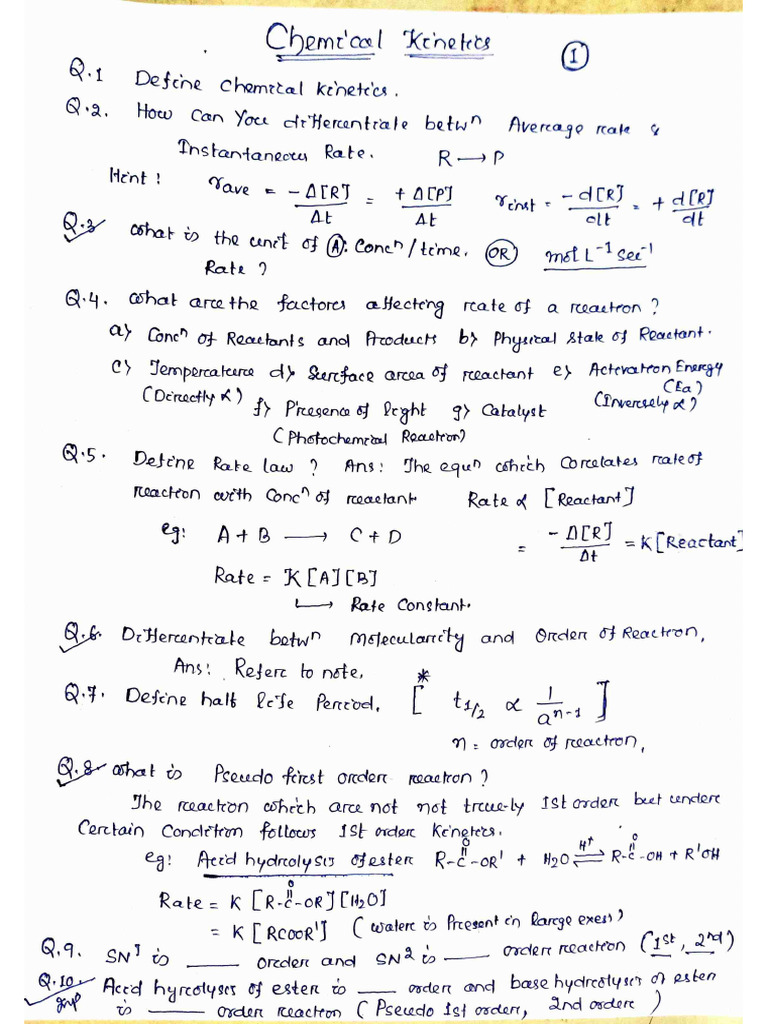 Chemical Kinetics
①
Q.1 Define chemical kinetics.
Q.2. How can you differentiate betwⁿ Average rate &
Instantaneous Rate. R ⟶ P
Hint: rave = -Δ[R]/Δt = +Δ[P]/Δt rinst = -d[R]/dt = +d[R]/dt
Q.3 What is the unit of Ⓐ: Concⁿ/time. OR mol L⁻¹ Sec⁻¹
Rate ?
Q.4. What are the factors affecting rate of a reaction?
a) Concⁿ of Reactants and Products b) Physical State of Reactant.
c) Temperature d) Surface area of reactant e) Activation Energy
(Directly ∝) (Ea)
f) Presence of light g) Catalyst (Inversely ∝)
(Photochemical Reaction)
Q.5. Define Rate law? Ans: The equⁿ which Corelates rate of
reaction with Concⁿ of reactant Rate ∝ [Reactant]
eg: A + B ⟶ C + D = -Δ[R]/Δt = K[Reactant]
Rate = K[A][B]
↳ Rate Constant.
Q.6. Differentiate betwⁿ Molecularity and Order of Reaction,
Ans: Refer to note, *
Q.7. Define half life Period. [ t1/2 ∝ 1/aⁿ⁻¹ ]
n = order of reaction,
Q.8 What is Pseudo first order reaction?
The reaction which are not not truely 1st order but under
Certain Condition follows 1st order Kinetics.
eg: Acid hydrolysis of ester R-C(=O)-OR' + H2O ⇌(H⁺) R-C(=O)-OH + R'OH
Rate = K [R-C(=O)-OR][H2O]
= K [RCOOR'] (Water is Present in large exess)
Q.9. SN¹ is ____ order and SN² is ____ order reaction (1st, 2nd)
Q.10. Acid hyrolyses of ester is ____ order and base hydrolyses of ester
imp is ____ order reaction (Pseudo 1st order, 2nd order)